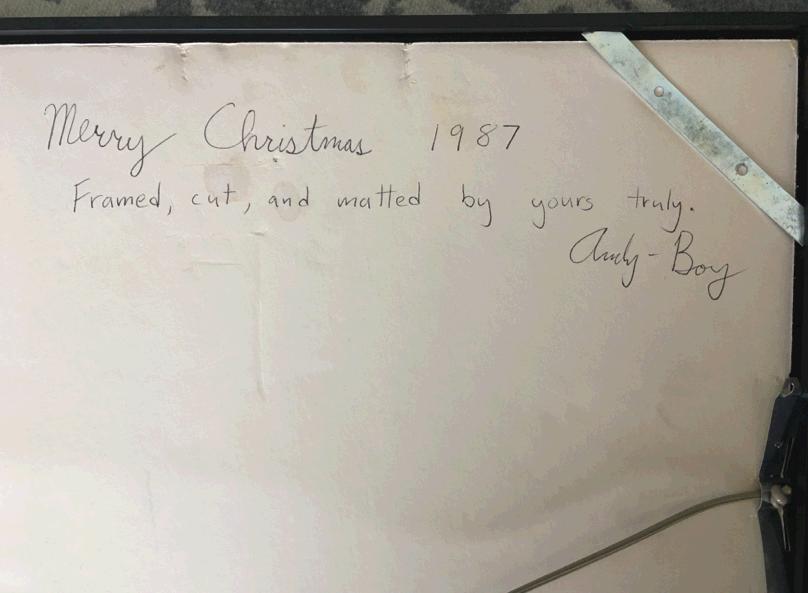 Merry Christmas 1987
Framed, cut, and matted by yours truly.
Andy-Boy